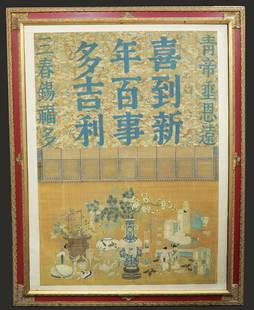 青帝垂恩遠
喜到新
年百事
多吉利
三春錫福多